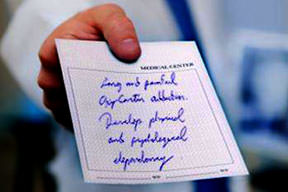 MEDICAL CENTER
Long and painful
OxyContin addiction.
Develop physical
and psychological
dependency